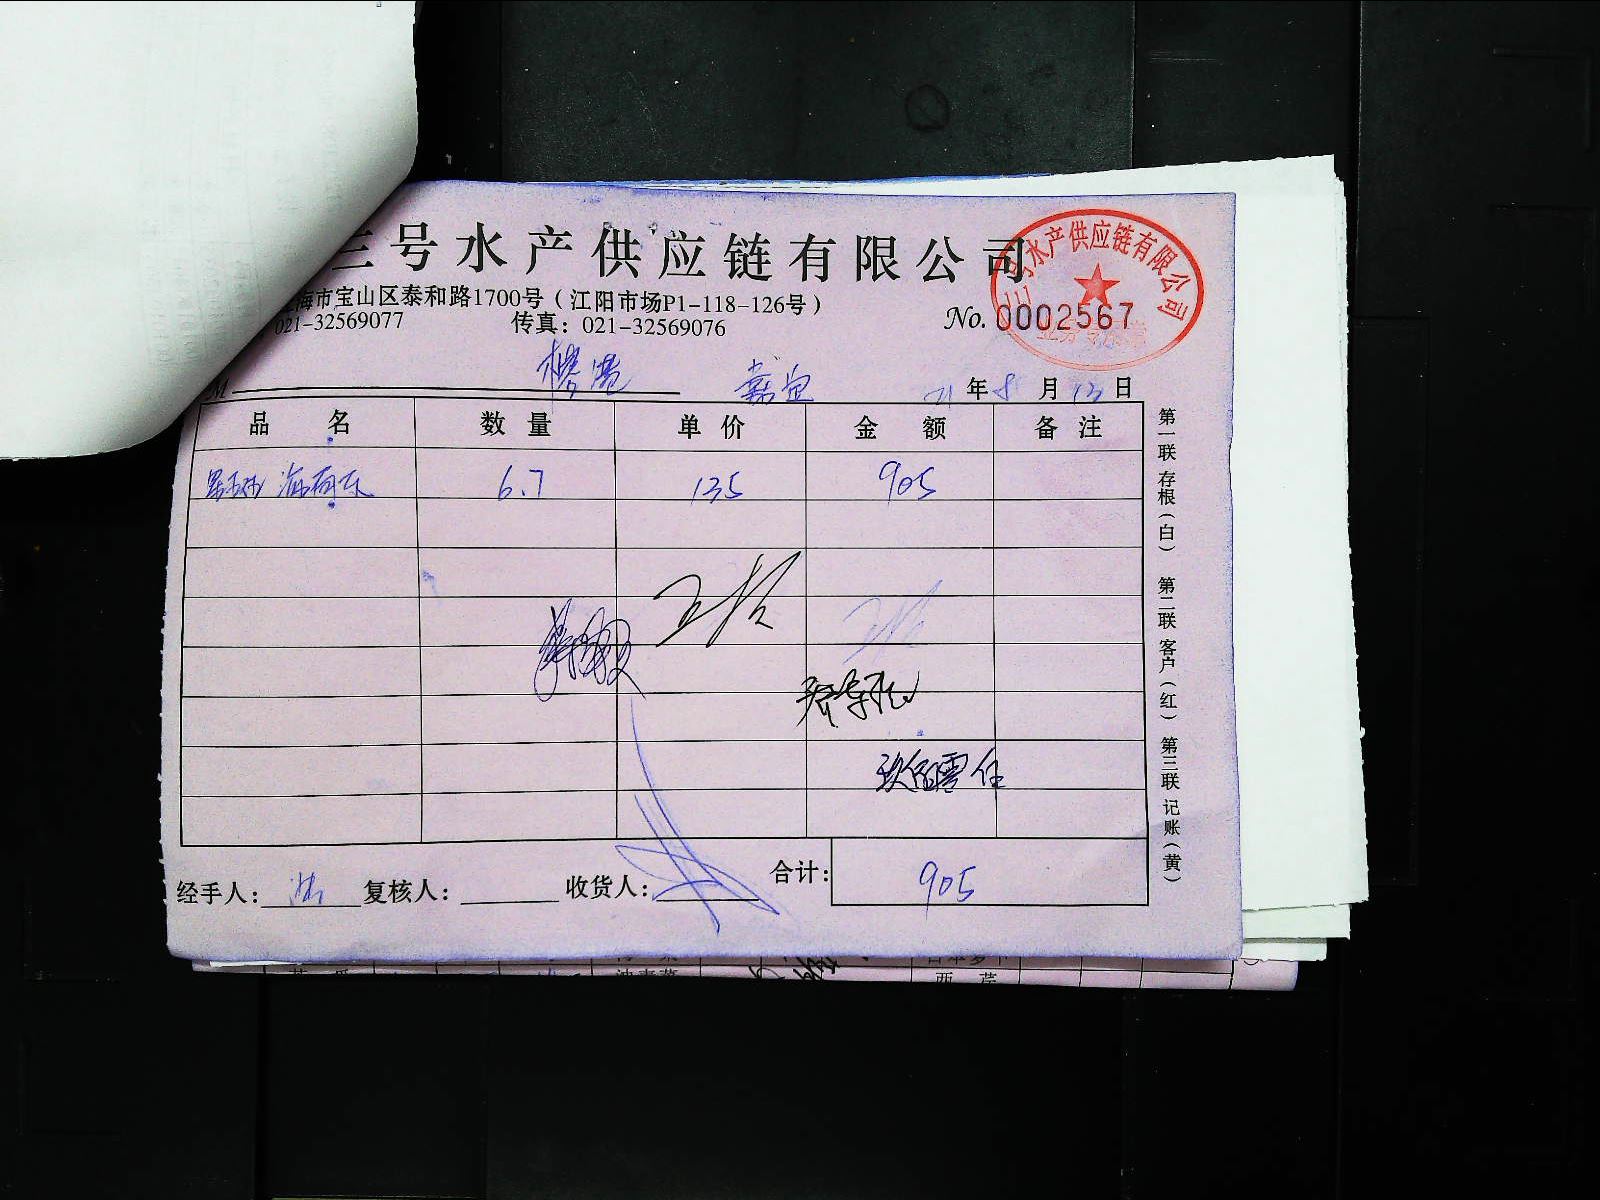 三号水产供应链有限公司
海市宝山区泰和路1700号（江阳市场P1-118-126号）
021-32569077 传真：021-32569076
No. 0002567
三号水产供应链有限公司
M 嘉宜 21年8月13日
品名 数量 单价 金额 备注
6.7 135 905
玖佰零伍
合计： 905
经手人： 复核人： 收货人：
第一联 存根（白） 第二联 客户（红） 第三联 记账（黄）